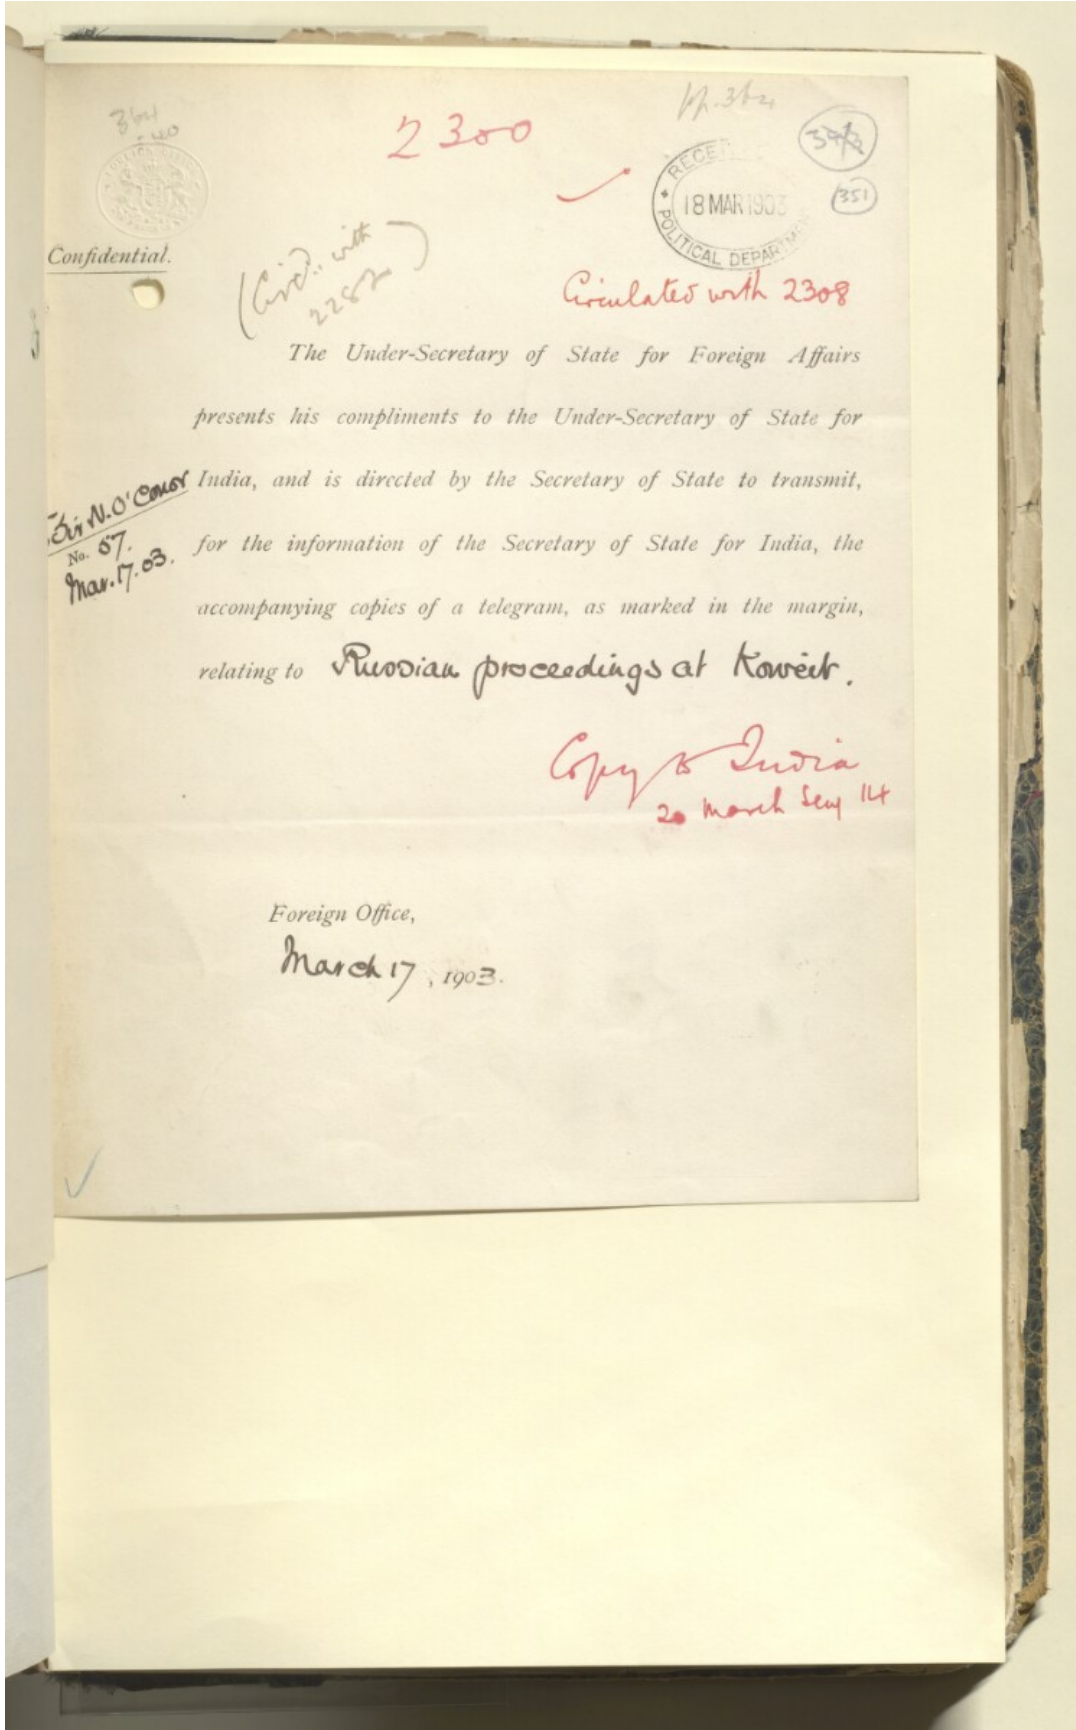 364
40
2300
pp. 364
RECEIVED
18 MAR 1903
POLITICAL DEPARTMENT
351
Confidential.
(Circd. with
2282)
Circulated with 2308
The Under-Secretary of State for Foreign Affairs
presents his compliments to the Under-Secretary of State for
India, and is directed by the Secretary of State to transmit,
for the information of the Secretary of State for India, the
accompanying copies of a telegram, as marked in the margin,
relating to Russian proceedings at Koweit.
Sir N. O'Conor
No. 57.
Mar. 17. 03.
Copy to India
20 March Secy 14
Foreign Office,
March 17, 1903.